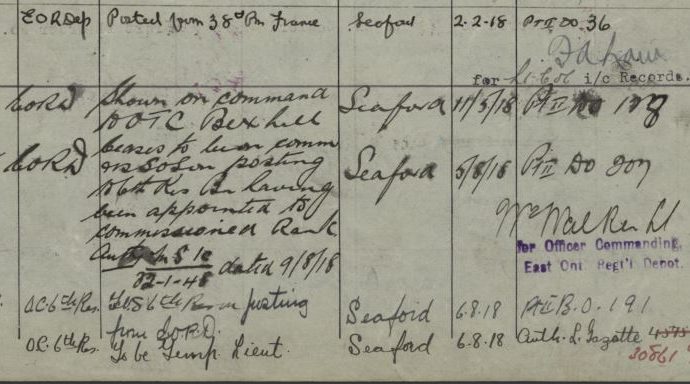 EORDep Posted from 38th Bn France Seaford 2-2-18 Pt II DO. 36
for Lt-Col i/c Records.
EORD Shown on command Seaford 11/5/18 Pt II DO
to OTC Bexhill
EORD Ceases to be on comm Seaford 5/8/18 Pt II DO 207
on posting
to 6th Res Bn having
been appointed to
commissioned Rank
Auth dated 9/8/18
22-1-48
W Walker Lt
for Officer Commanding,
East Ont Regt'l Depot.
O.C. 6th Res. TOS 6th Res on posting Seaford 6.8.18 Pt II B.O. 191
from E.O.R.D.
O.C. 6th Res. To be Temp. Lieut. Seaford 6.8.18 Auth. L. Gazette
30861